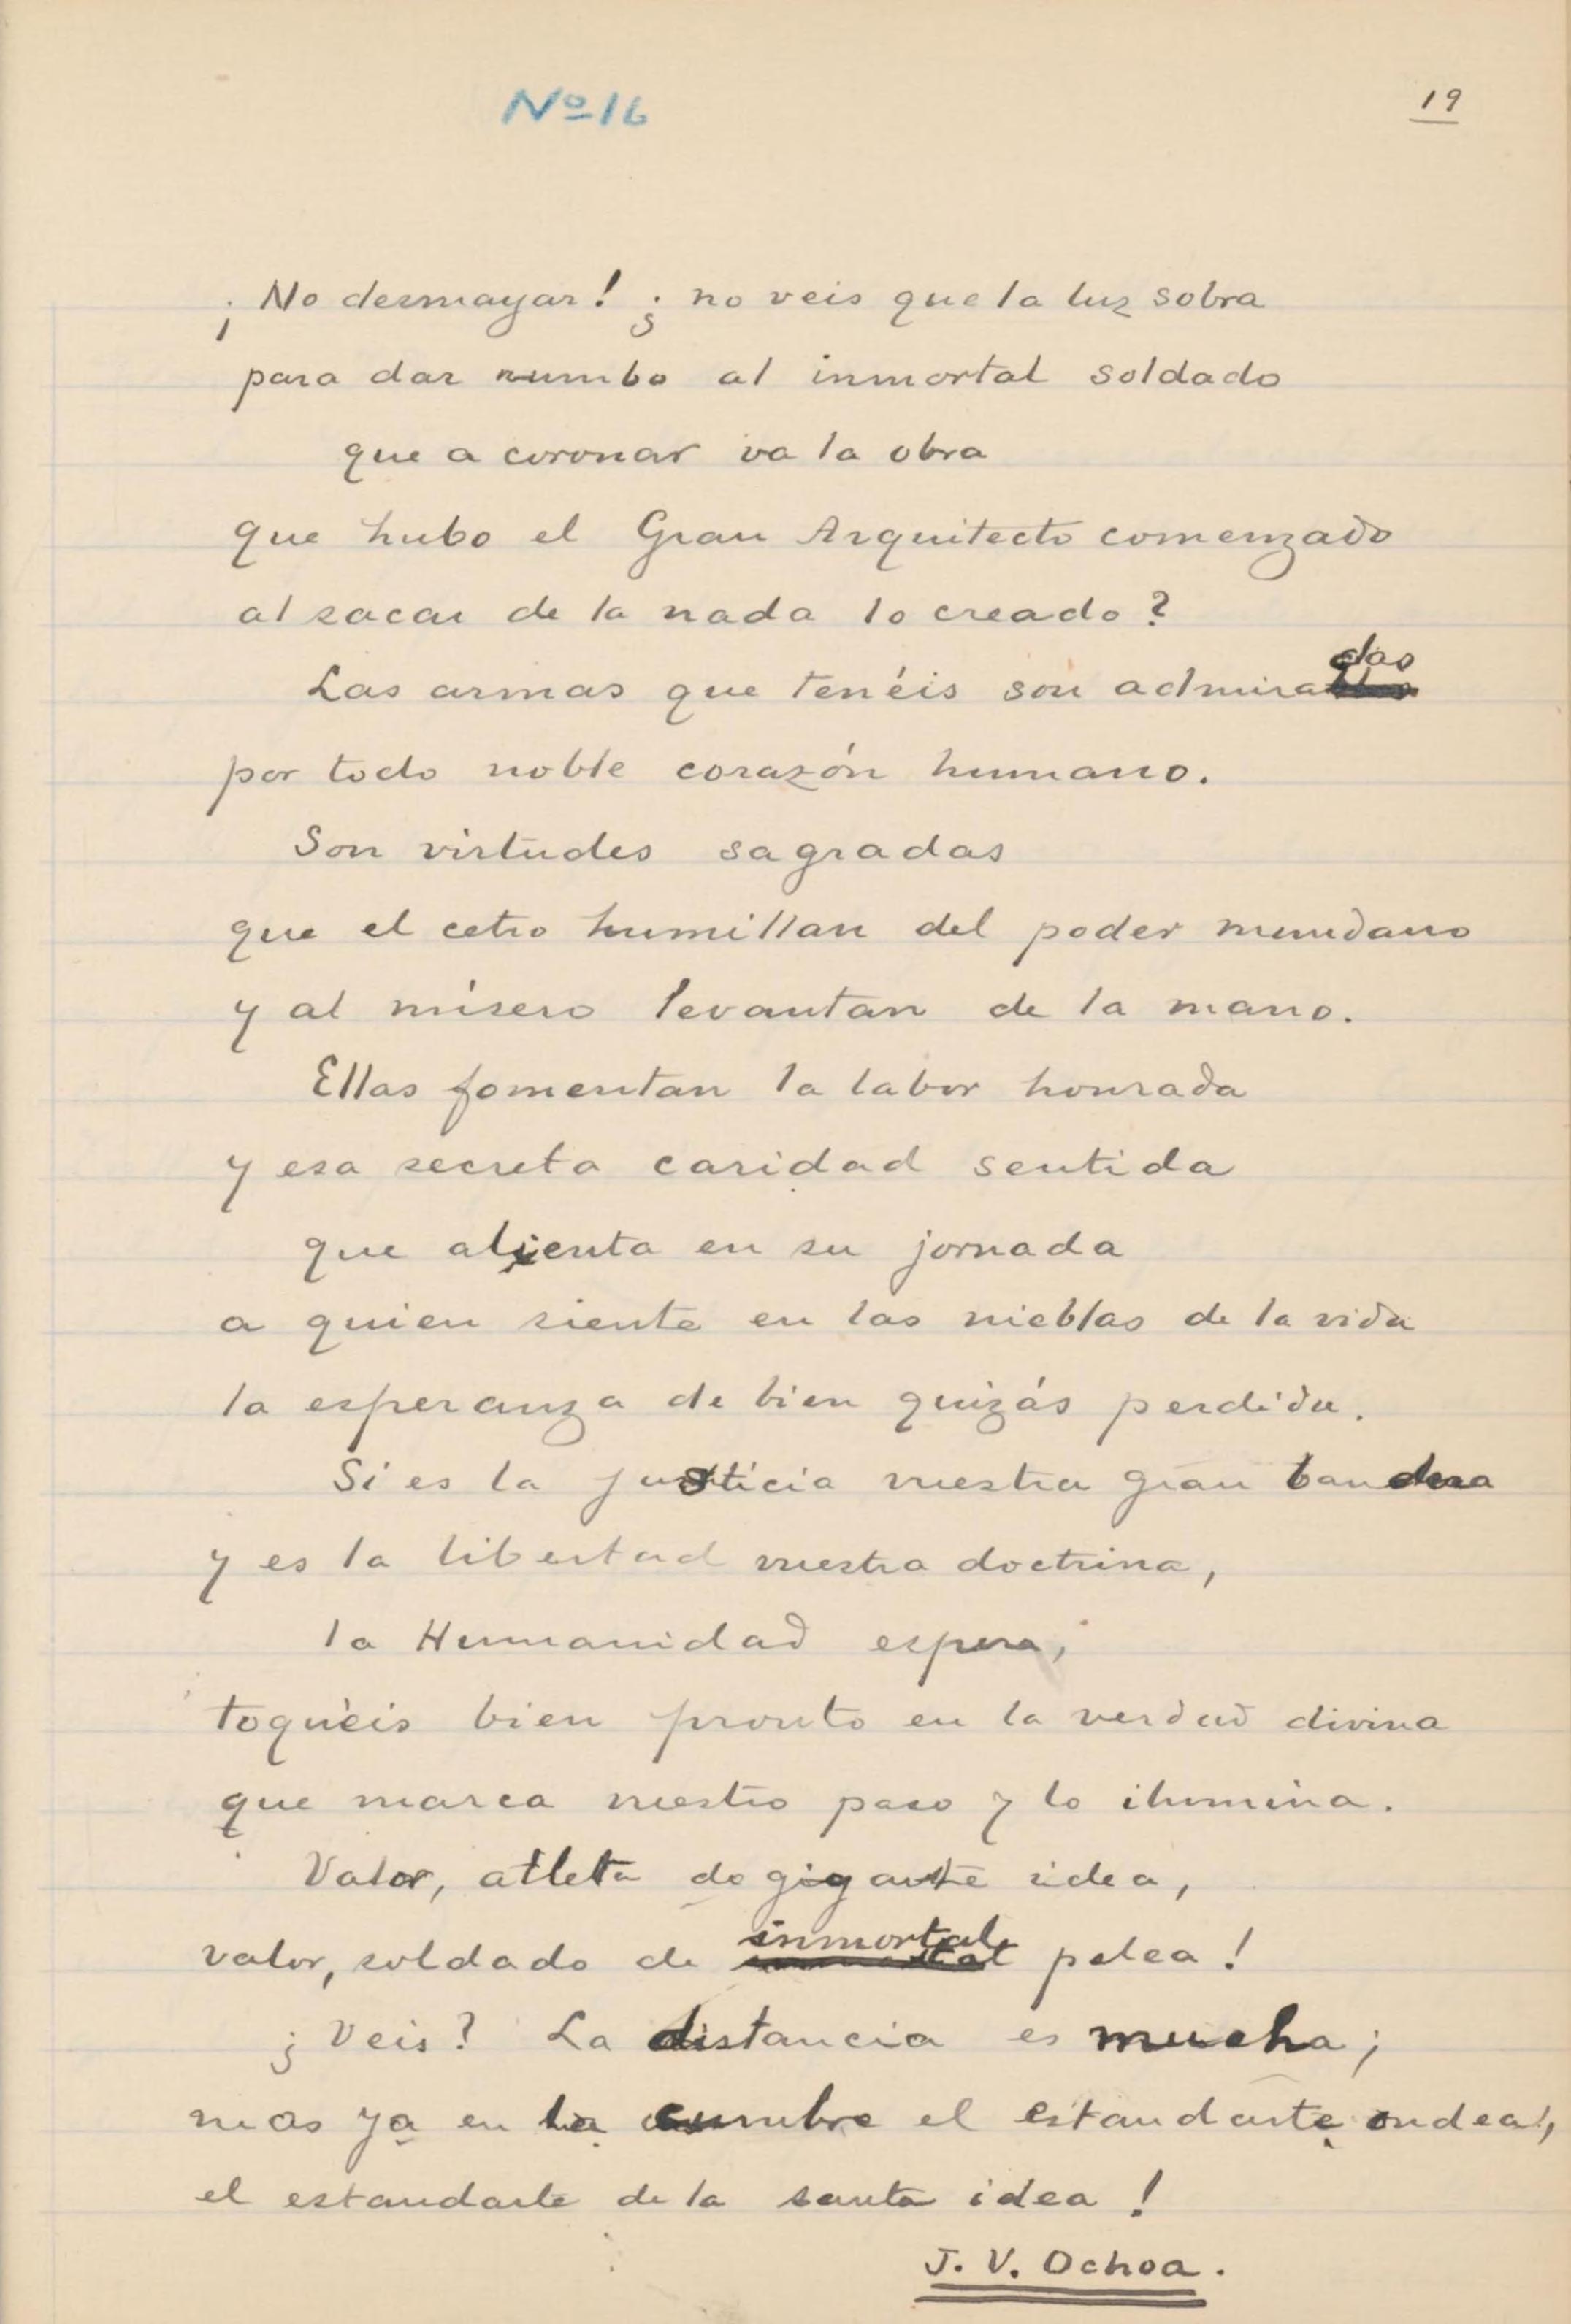 Nº 16
19
¡No desmayar! ¿no veis que la luz sobra
para dar rumbo al inmortal soldado
que a coronar va la obra
que hubo el Gran Arquitecto comenzado
al sacar de la nada lo creado?
Las armas que tenéis son admiradas
por todo noble corazón humano.
Son virtudes sagradas
que el cetro humillan del poder mundano
y al mísero levantan de la mano.
Ellas fomentan la labor honrada
y esa secreta caridad sentida
que alienta en su jornada
a quien siente en las nieblas de la vida
la esperanza de bien quizás perdida.
Si es la justicia vuestra gran bandera
y es la libertad vuestra doctrina,
la Humanidad espera,
toquéis bien pronto en la verdad divina
que marca nuestro paso y lo ilumina.
Valor, atleta de gigante idea,
valor, soldado de inmortal pelea!
¿Veis? La distancia es mucha;
mas ya en la cumbre el estandarte ondea!,
el estandarte de la santa idea!
J. V. Ochoa.